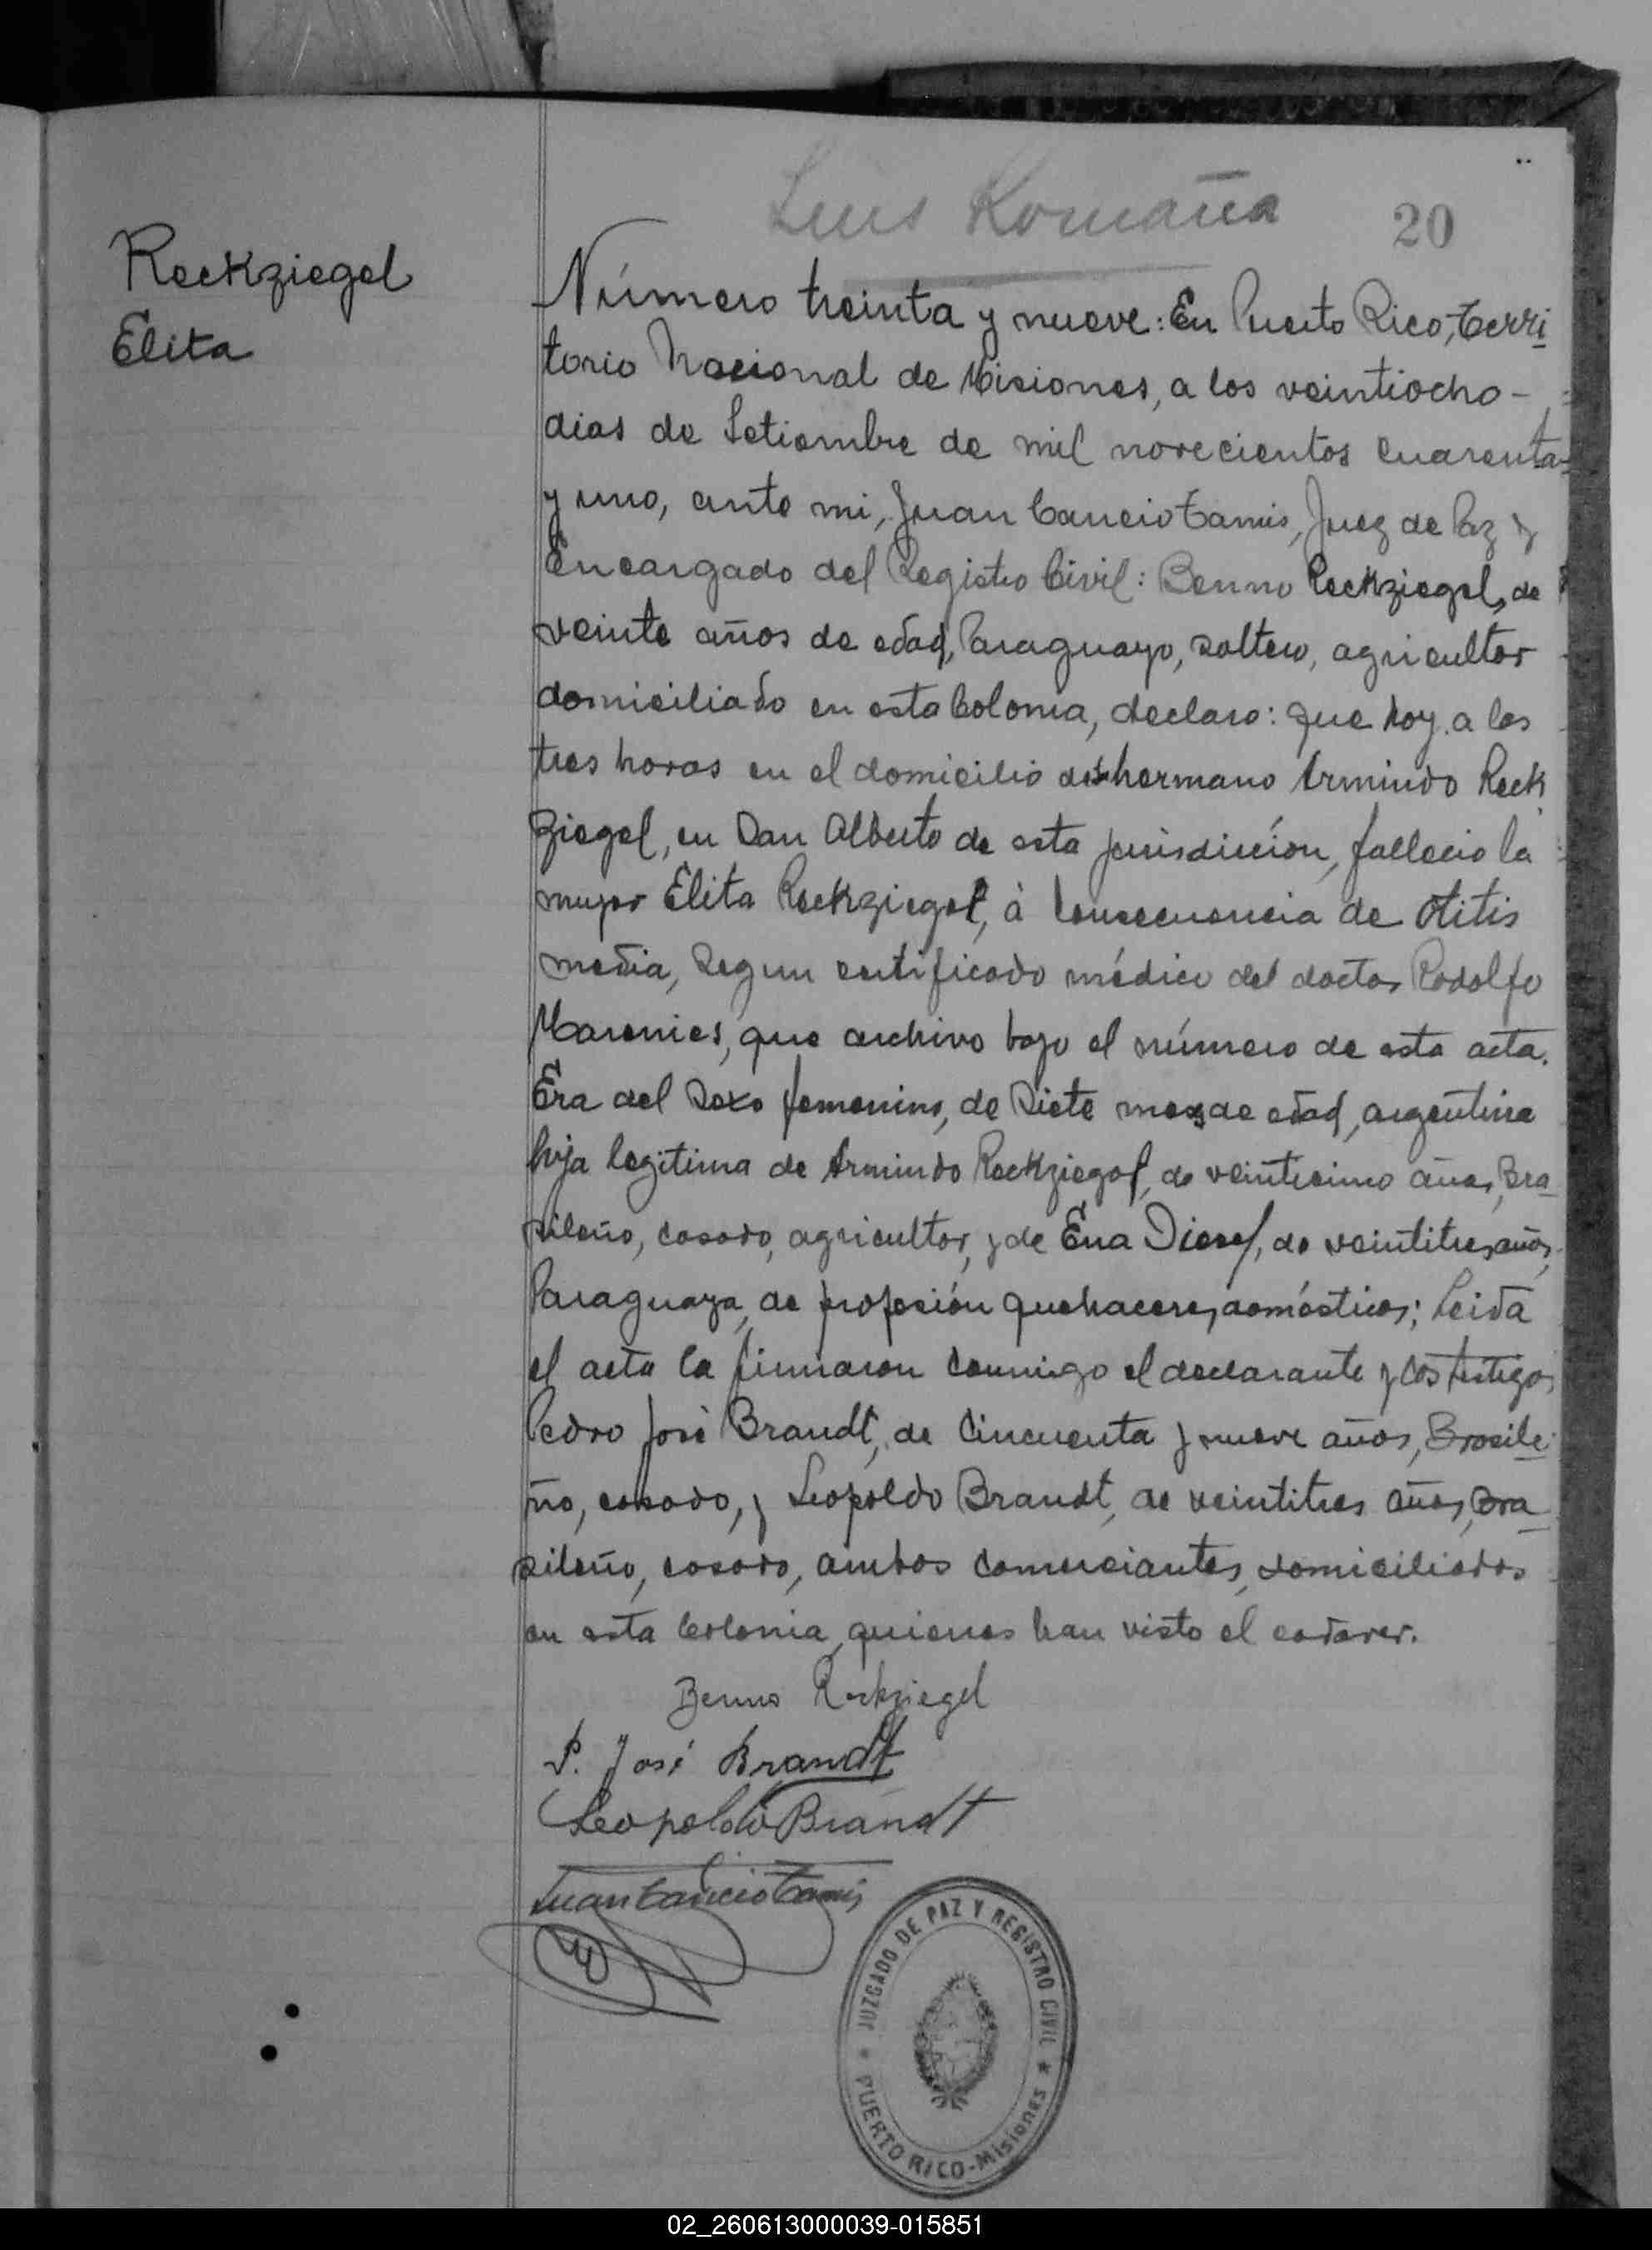 Luis Romaña
20
Reckziegel
Elita
Número treinta y nueve: En Puerto Rico, Terri
torio Nacional de Misiones, a los veintiocho -
dias de Setiembre de mil novecientos cuarenta
y uno, ante mi, Juan Cancio Tamis, Juez de Paz y
Encargado del Registro Civil: Benno Reckziegel, de
veinte años de edad, Paraguayo, soltero, agricultor
domiciliado en esta Colonia, declaro: que hoy a las
tres horas en el domicilio de su hermano Armindo Reck
ziegel, en San Alberto de esta jurisdicción, fallecio la
mujer Elita Reckziegel, à consecuencia de Otitis
media, segun certificado médico del doctor Rodolfo
que archivo bajo el número de esta acta.
Era del sexo femenino, de siete meses de edad, argentina
hija legitima de Armindo Reckziegel, de veinticinco años, Bra
sileño, casado, agricultor, y de Ena Diesel, de veintitres años,
Paraguaya, de profesión quehaceres domésticos; Leida
el acta la firmaron conmigo el declarante y los testigos
Pedro José Brandt, de cincuenta y nueve años, Brasile
ño, casado, y Leopoldo Brandt, de veintitres años, Bra
sileño, casado, ambos comerciantes, domiciliados
en esta Colonia, quienes han visto el cadaver.
Benno Reckziegel
P. José Brandt
Leopoldo Brandt
Juan Cancio Tamis
JUZGADO DE PAZ Y REGISTRO CIVIL
PUERTO RICO - Misiones
02_260613000039-015851